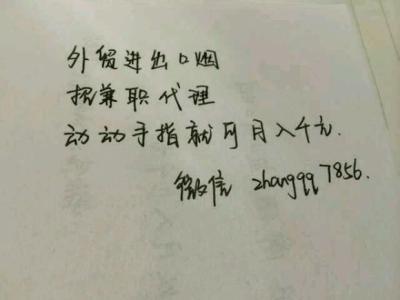 外贸进出口烟
招兼职代理
动动手指就可月入千元.
微信 zhangqq7856.